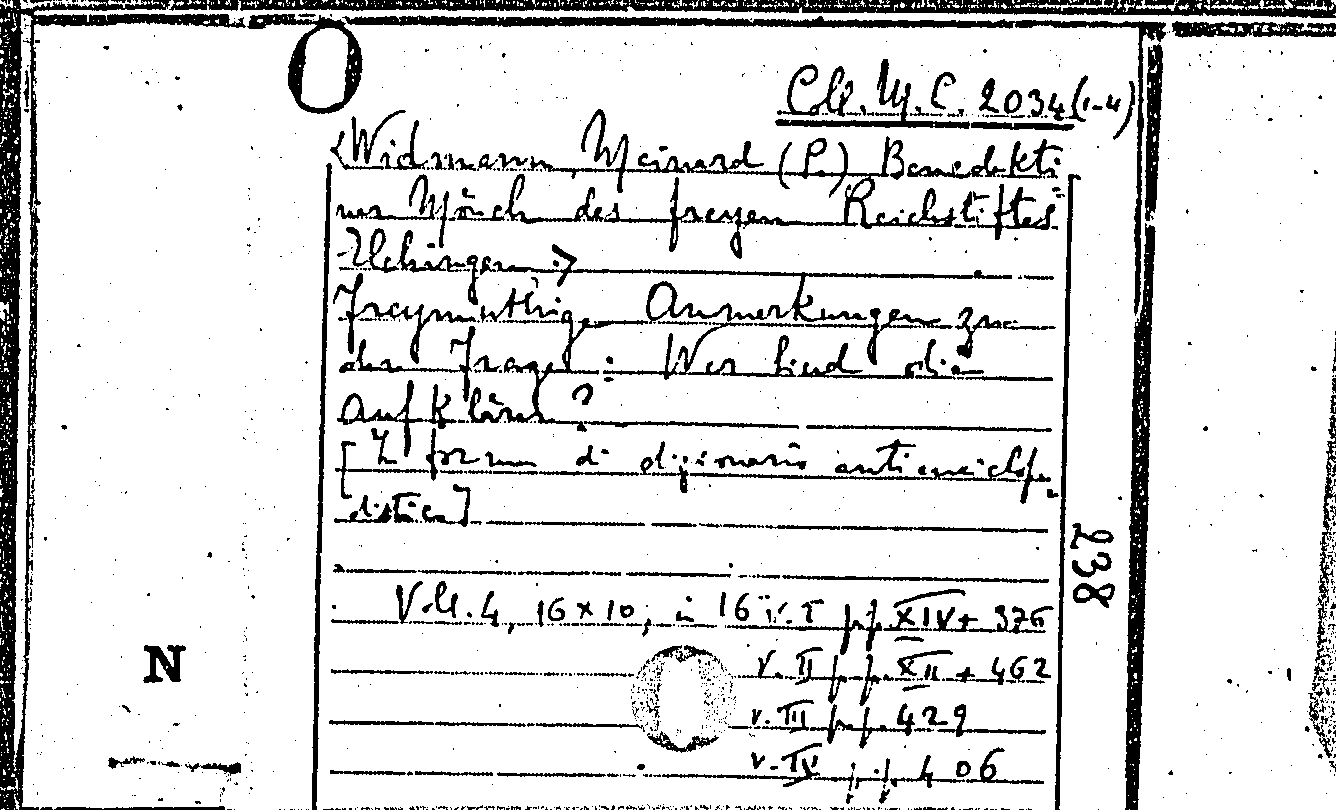 O
Coll. M. C. 2034 (1-4)
<Widmann, Meinard (P.) Benedikti
ner Mönch des freyen Reichstiftes
Elchingen :>
Freymüthige Anmerkungen zu
der Frage: Wer sind die
Aufklärer?
[In forma di dizionario antienciclope
distico]
Voll. 4, 16 x 10, in 16° v. I pp. XIV + 376
v. II pp. XII + 462
v. III pp. 429
v. IV pp. 406
238
N